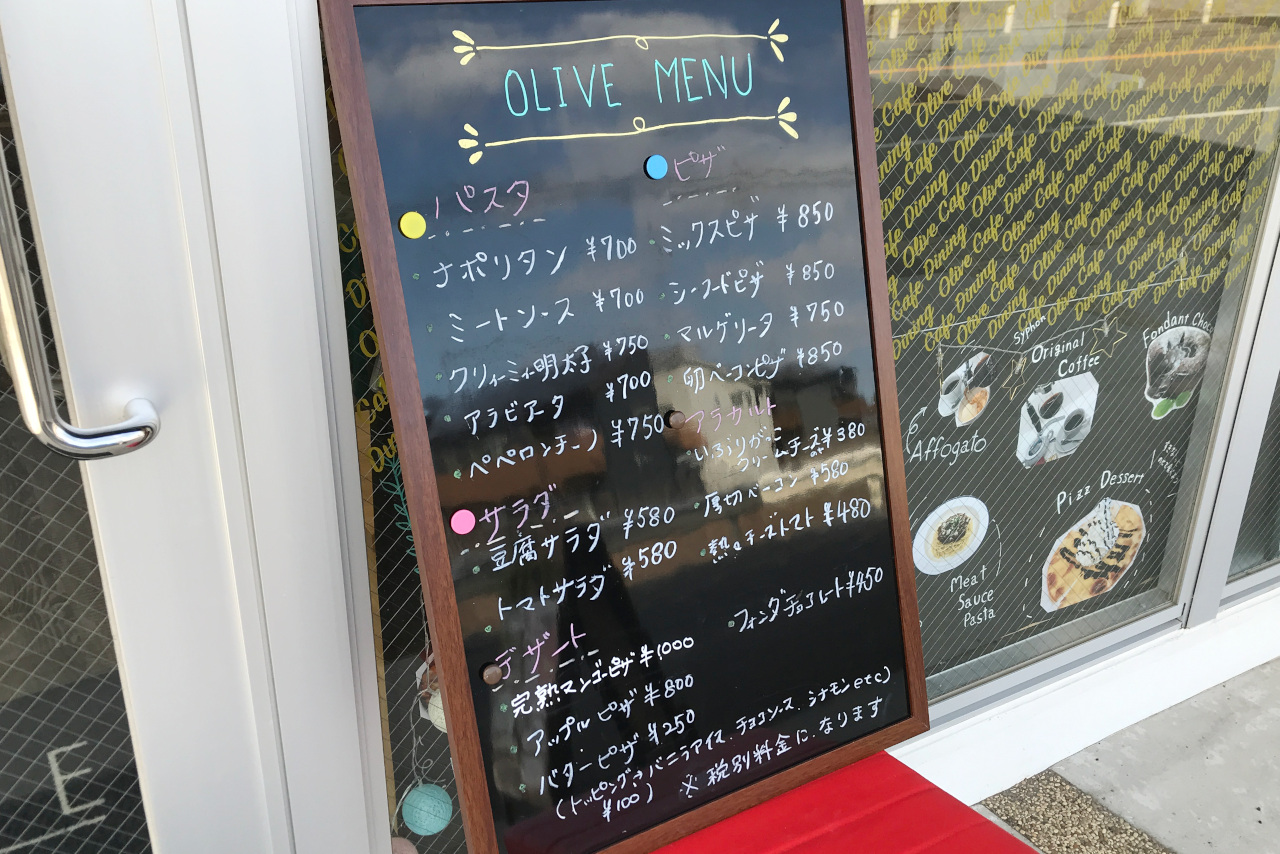 OLIVE MENU
パスタ
ナポリタン ¥700
ミートソース ¥700
クリィーミィー明太子 ¥750
アラビアータ ¥700
ペペロンチーノ ¥750
サラダ
豆腐サラダ ¥580
トマトサラダ ¥580
デザート
完熟マンゴーピザ ¥1000
アップルピザ ¥800
バターピザ ¥250
(トッピング バニラアイス、チョコソース、シナモンetc)
¥100)
※税別料金になります
ピザ
ミックスピザ ¥850
シーフードピザ ¥850
マルゲリータ ¥750
卵ベーコンピザ ¥850
アラカルト
いぶりがっこ
クリームチーズ ¥380
厚切ベーコン ¥580
熱々チーズトマト ¥480
フォンダンチョコレート ¥450
Olive Cafe Dining
Syphon
Original
Coffee
Fondant Choco
Affogato
Meat
Sauce
Pasta
Pizz Dessert
E